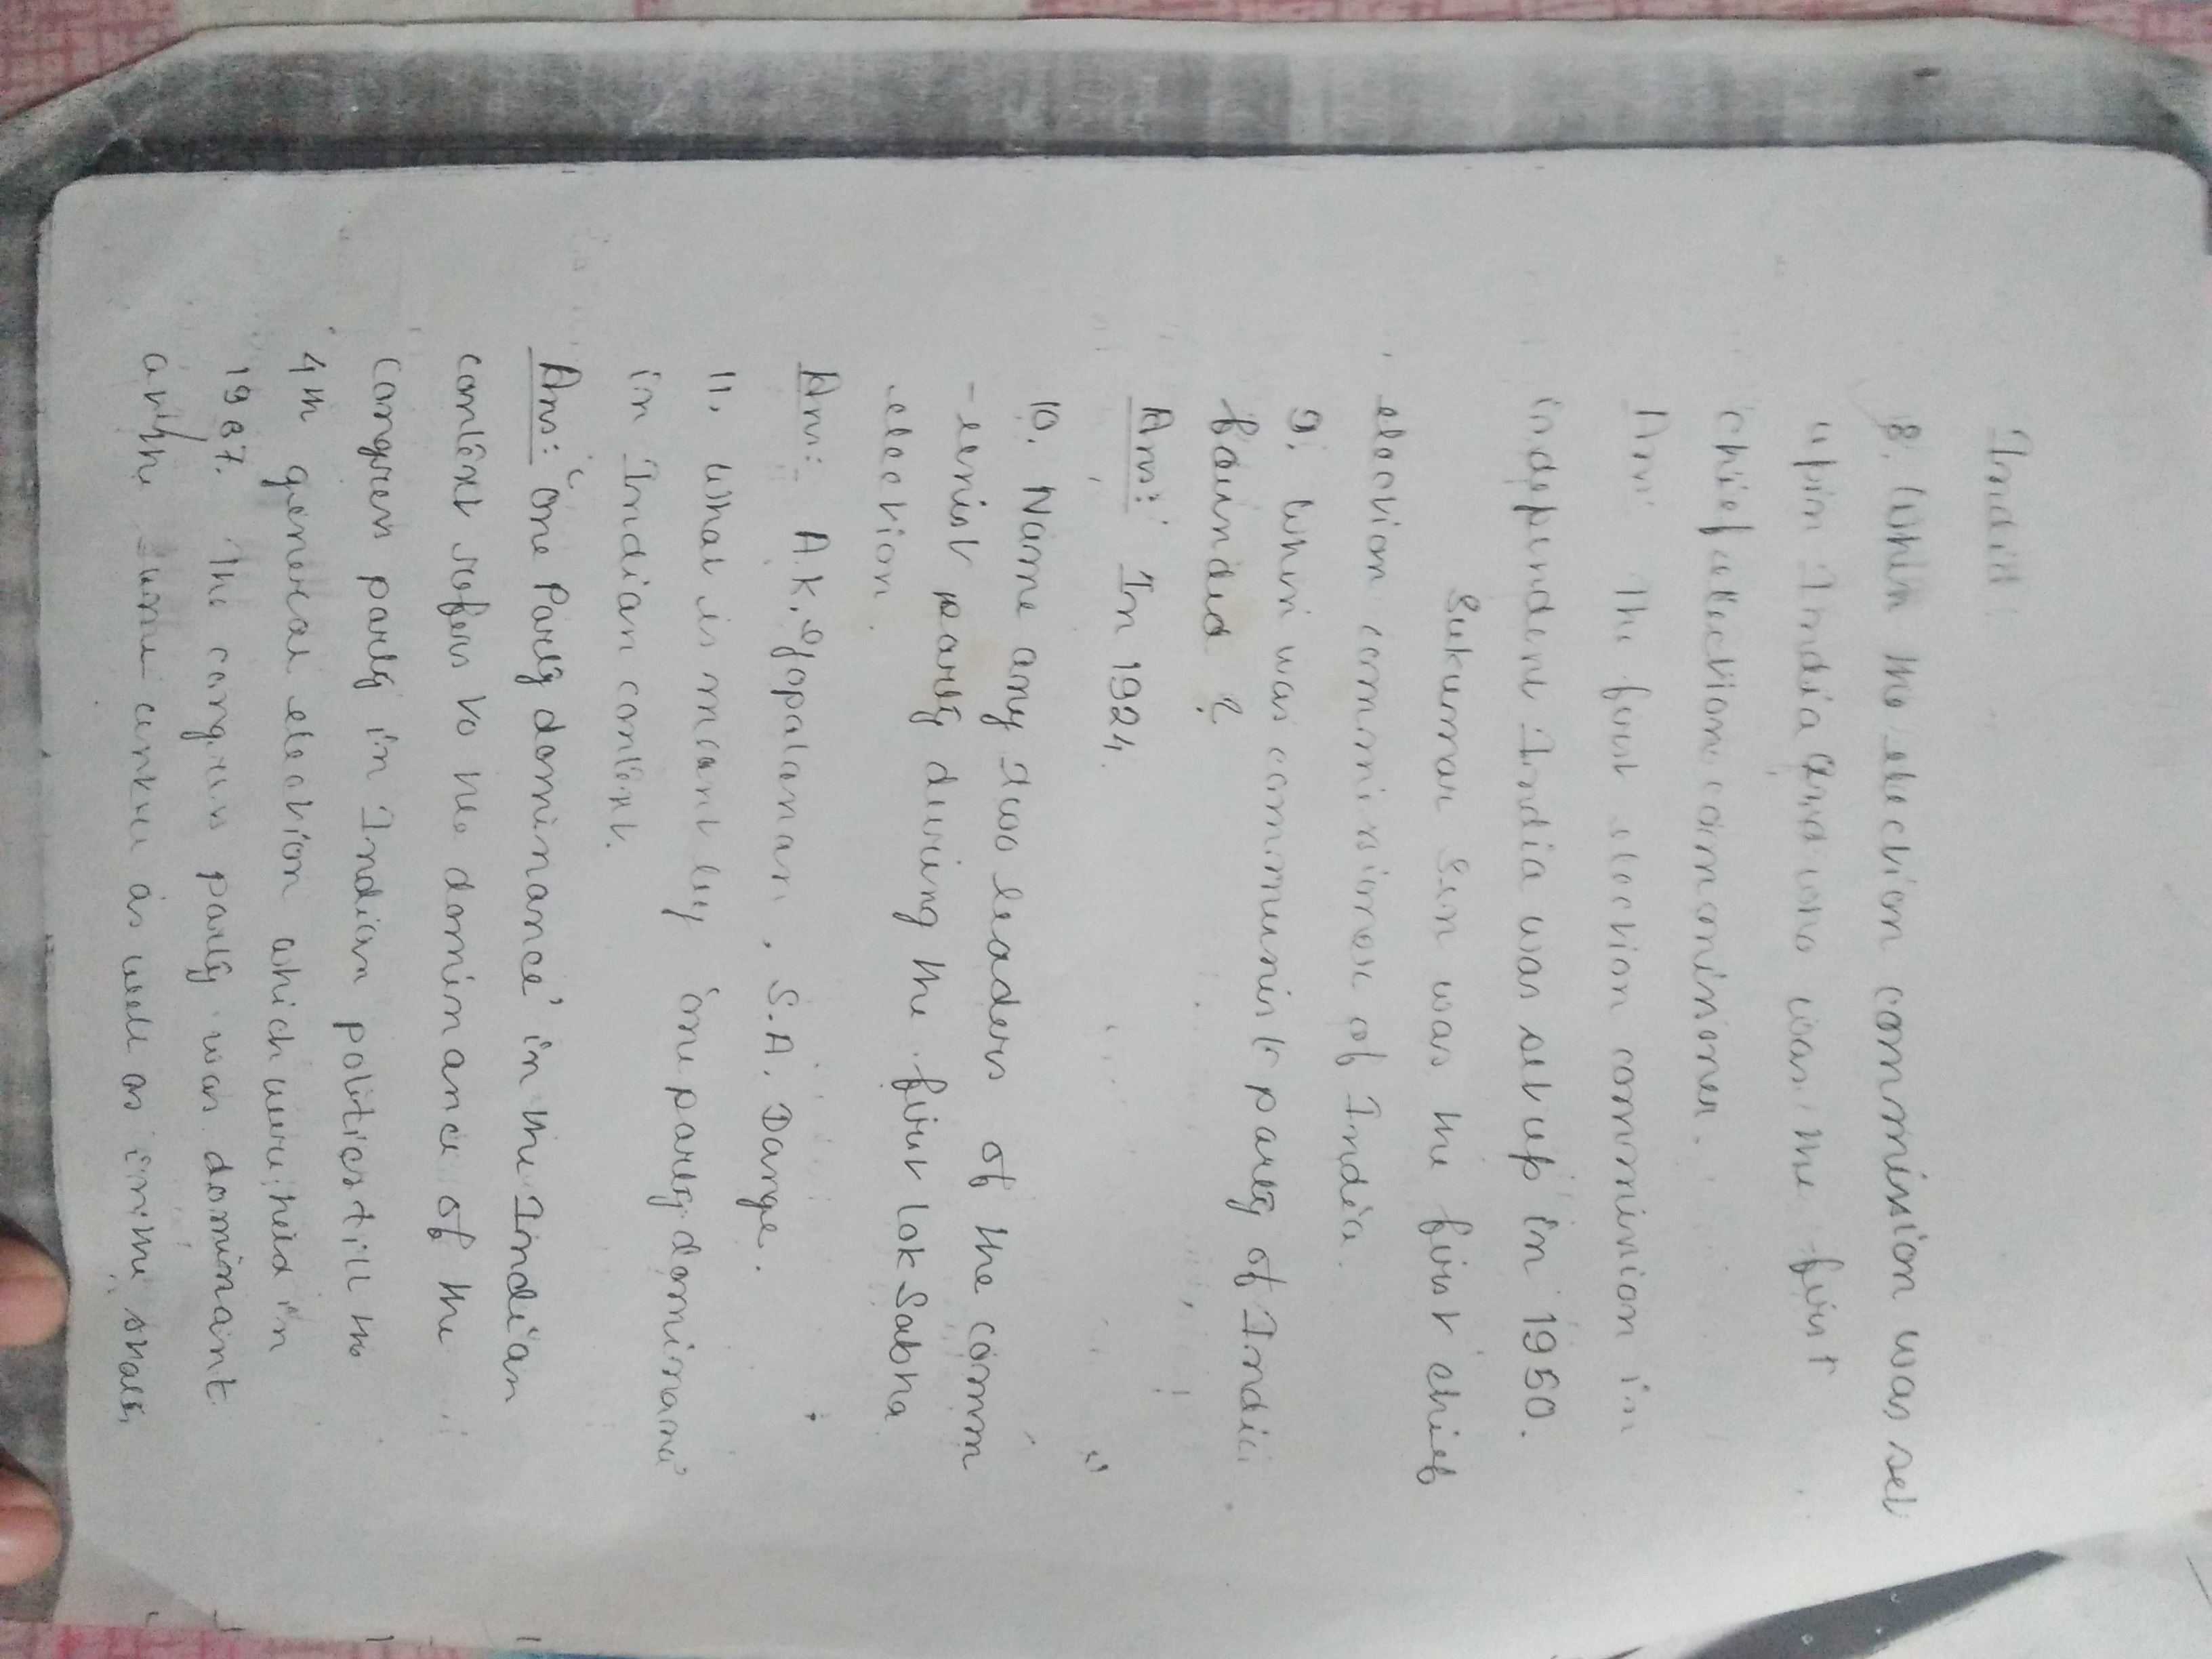 India.
8. When the election commission was set
up in India and who was the first
chief election commissioner.
Ans: The first election commission in
independent India was set up in 1950.
Sukumar Sen was the first chief
election commissioner of India.
9. When was communist party of India
founded ?
Ans: In 1924.
10. Name any two leaders of the comm
-unist party during the first lok Sabha
election.
Ans: A.K. Gopalanan, S.A. Dange.
11. What is meant by 'one party dominance'
in Indian context.
Ans: 'One Party dominance' in the Indian
context refers to the dominance of the
Congress party in Indian politics till the
4th general election which were held in
1967. The congress party was dominant
at the centre as well as in the states